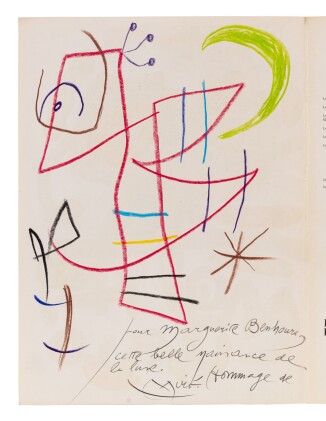 pour Marguerite Benhoura,
cette belle naissance de
la luxe.
Miró. (Hommage de